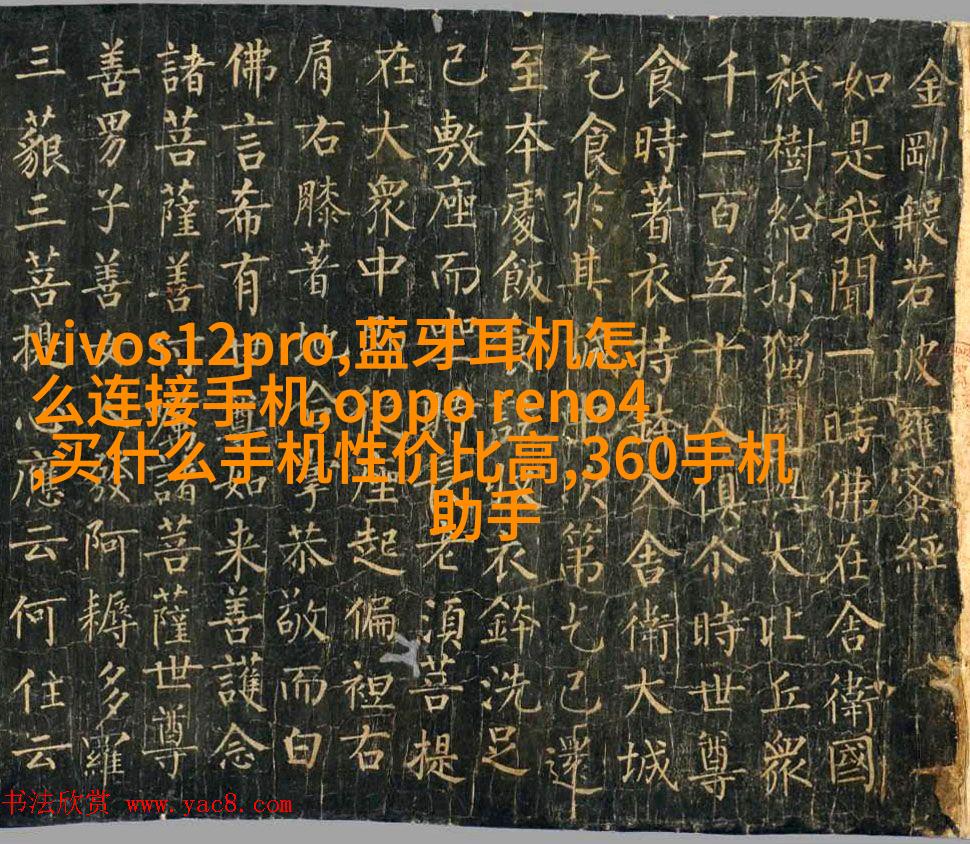 金剛般若波羅蜜經
如是我聞一時佛在舍衛國
祇樹給孤獨園大比丘衆
千二百五十人俱尒時世尊
食時著衣持鉢入舍衛大城
乞食於其城中次第乞已還
至本處飯食衣鉢洗足
已敷座而坐長老須菩提
在大衆中座起偏袒右
肩右膝著地合掌恭敬而白
佛言希有世如来善護念
諸菩薩善付諸菩薩世尊
善男子善女發阿耨多羅
三藐三菩提心應云何住云
vivos12pro,蓝牙耳机怎
么连接手机,oppo reno4
,买什么手机性价比高,360手机
助手
书法欣赏 www.yac8.com